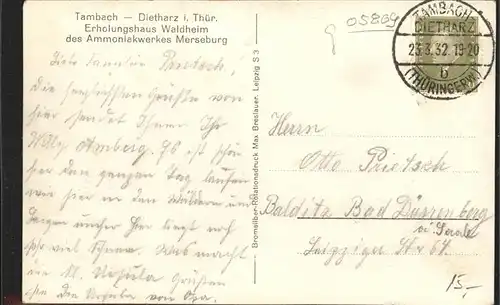 Tambach — Dietharz i. Thür.
Erholungshaus Waldheim
des Ammoniakwerkes Merseburg
05809
TAMBACH-
DIETHARZ
23.3.32.19-20
b
(THÜRINGERW.)
Liebe Familie Prietsch!
Die herzlichsten Grüße von
hier sendet Ihnen Ihr
Willy Amberg. Es ist schön
hier den ganzen Tag laufen
wir hier in den Wäldern und
Bergen umher hier liegt noch
sehr viel Schnee. Was macht
die kl. Ursula Grüßen
Sie die Ursula von
Bromsilber-Rotationsdruck Max Breslauer, Leipzig S 3
Herrn
Otto Prietsch
Balditz Bad Dürrenberg
a. Saale
Leipziger Str 64
15,-